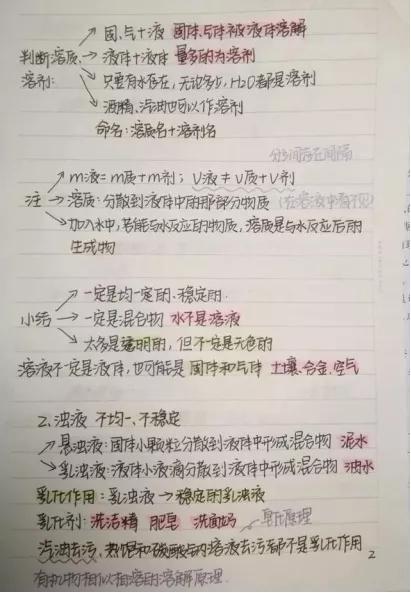 固、气+液 固体、气体被液体溶解
判断溶质、 液体+液体 量多的为溶剂
溶剂: 只要有水存在,无论多少,H2O都是溶剂
酒精、汽油也可以作溶剂
命名:溶质名+溶剂名
分子间存在间隔
m液=m质+m剂;V液≠V质+V剂
注 溶质:分散到液体中的那部分物质(在溶液中看不见)
加入水中,若能与水反应的物质,溶质是与水反应后的
生成物
一定是均一的、稳定的.
小结 一定是混合物 水不是溶液
大多是透明的,但不一定是无色的
溶液不一定是液体,也可能是固体和气体 土壤、合金、空气
2、浊液 不均一、不稳定
悬浊液:固体小颗粒分散到液体中形成混合物 泥水
乳浊液:液体小液滴分散到液体中形成混合物 油水
乳化作用:乳浊液→稳定的乳浊液
乳化剂:洗洁精 肥皂 洗面奶 乳化原理
汽油去污、热碱和碳酸后的溶液去污都不是乳化作用
有机物相似相溶的溶解原理.
2